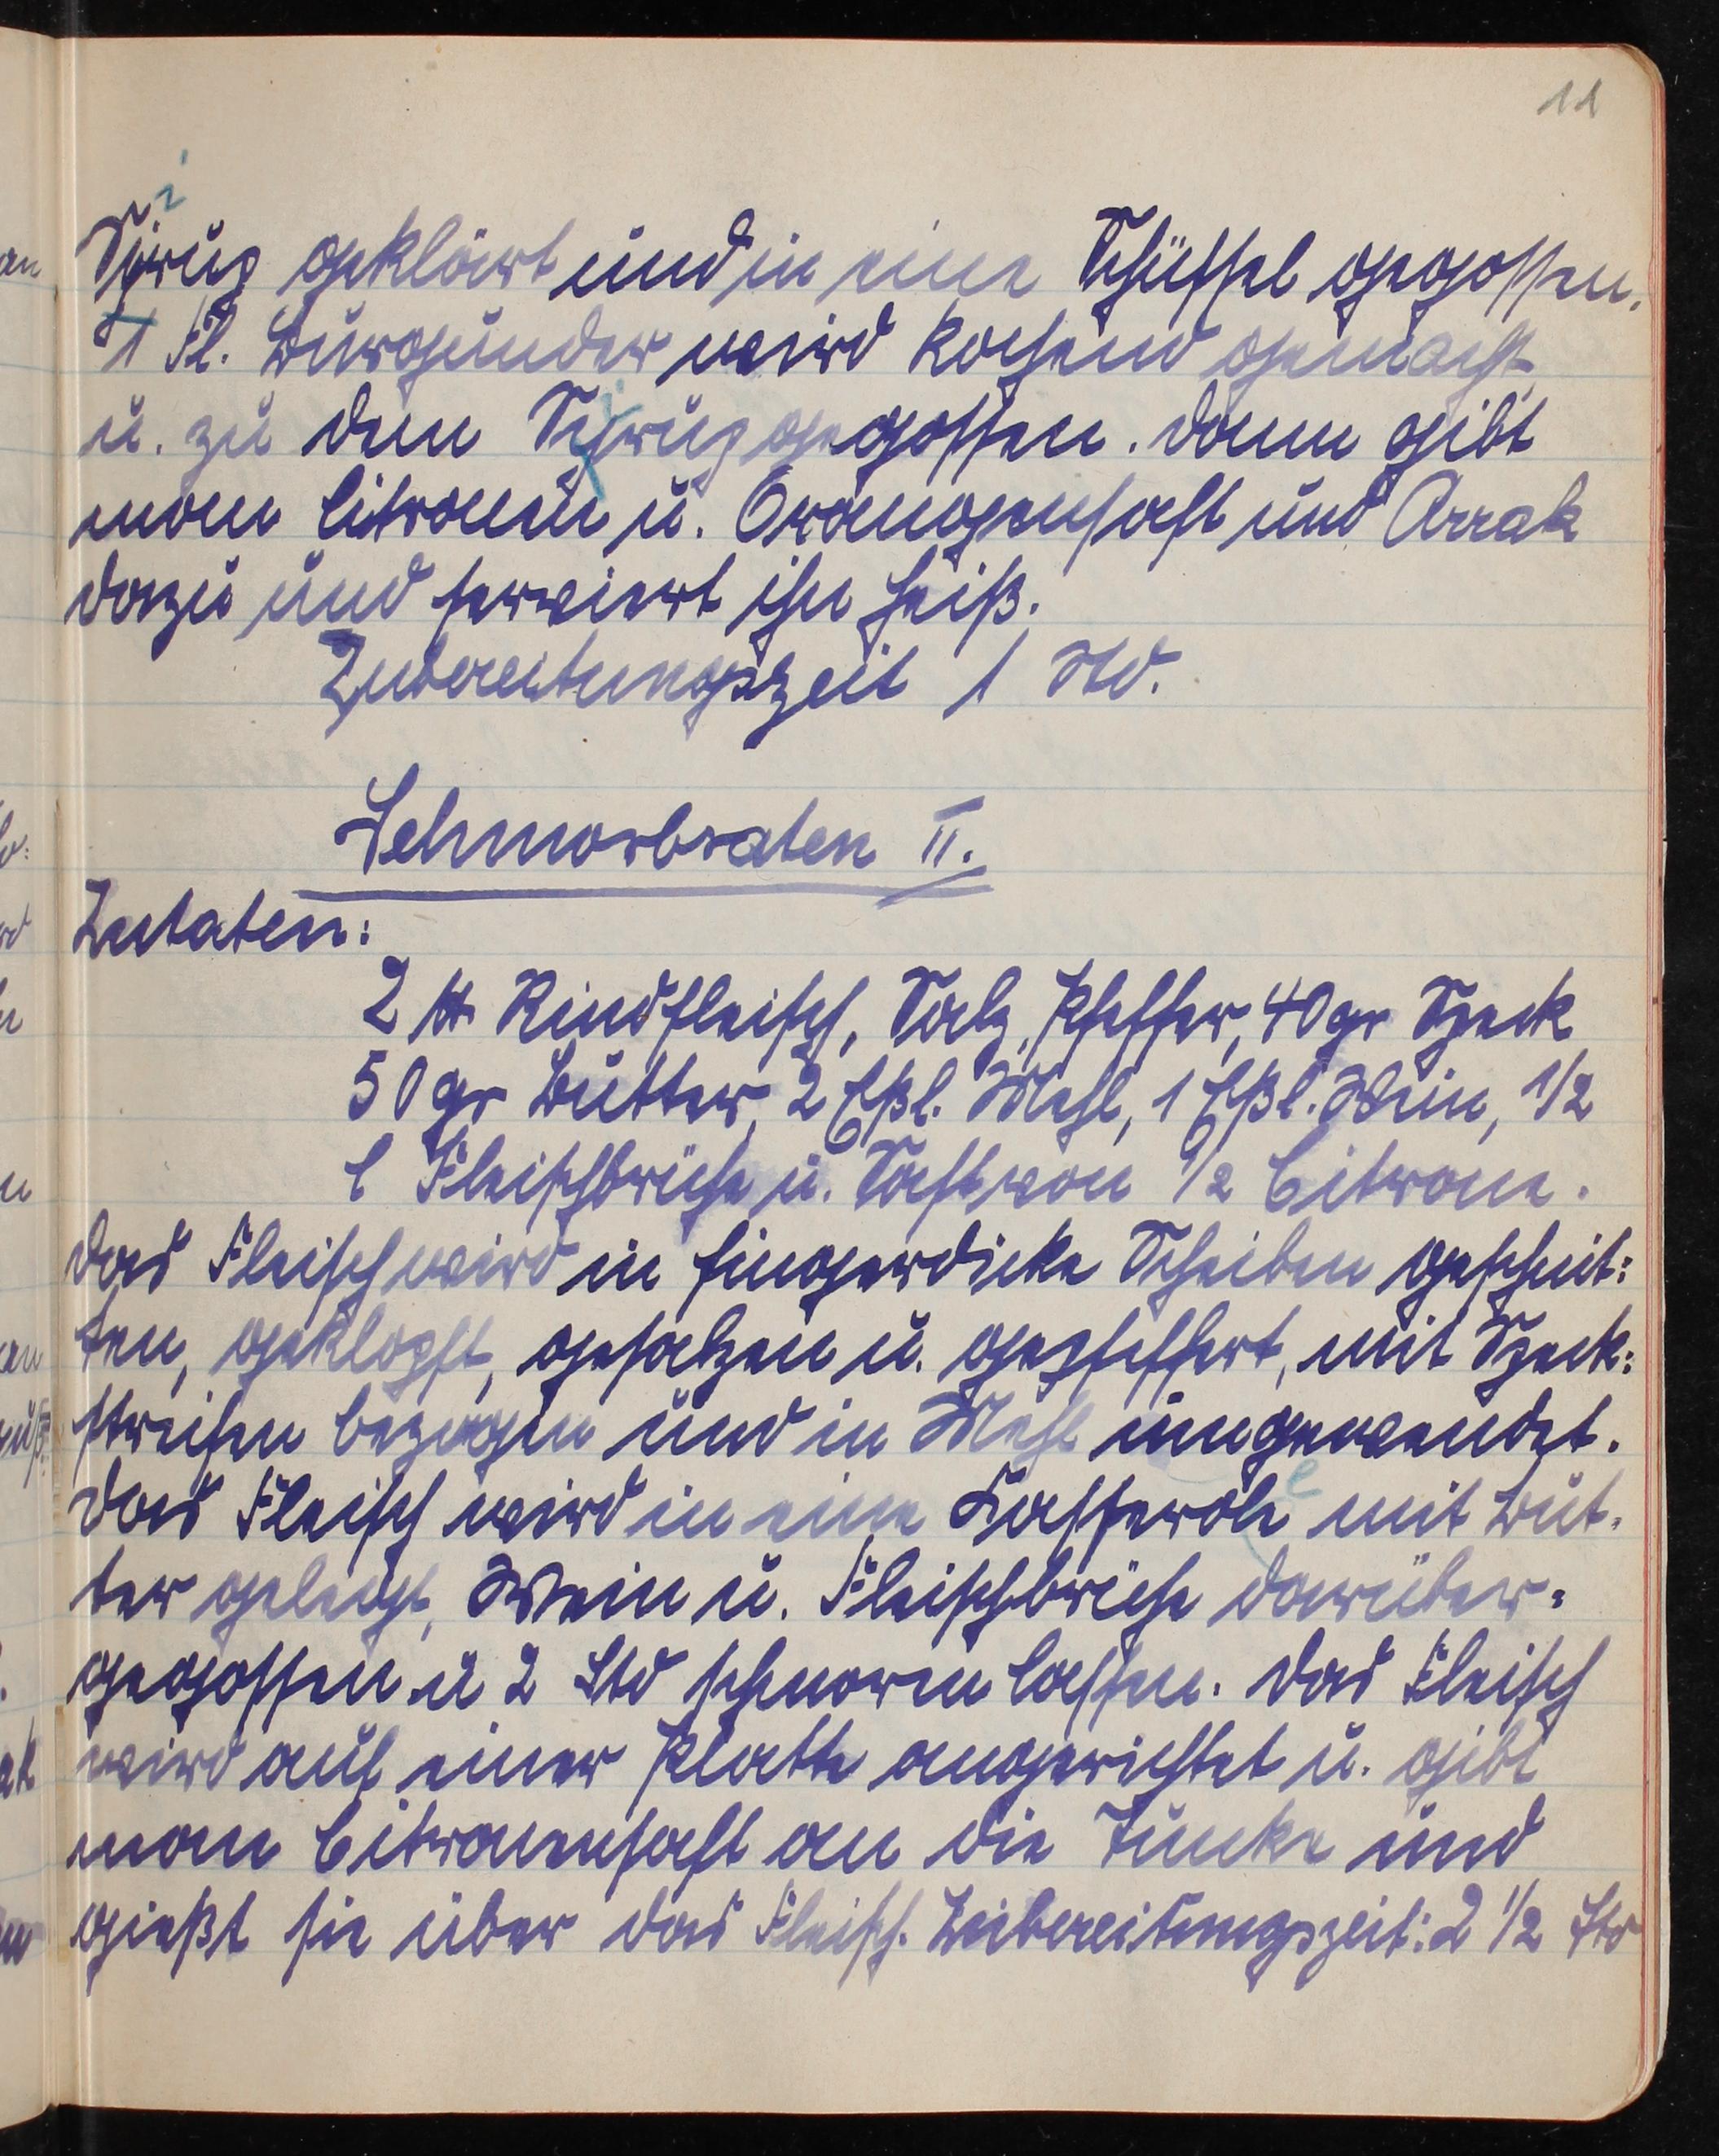 11
Syrup geklärt und in eine Schüssel gegossen.
1 Fl. Burgunder wird kochend gemacht
u. zu dem Syrup gegossen. dann gibt
man Citronen u. Orangensaft und Arrak
dazu und serviert ihn heiß.
Zubereitungszeit 1 Std.
Schmorbraten II.
Zutaten:
2 ℔ Rindfleisch, Salz, Pfeffer, 40 gr Speck
50 gr Butter, 2 Eßl. Mehl, 1 Eßl. Wein, 1/2
l Fleischbrühe u. Saft von 1/2 Citrone.
das Fleisch wird in fingerdicke Scheiben geschnit:
ten, geklopft, gesalzen u. gepfeffert, mit Speck:
streifen bezogen und in Mehl umgewendet.
das Fleisch wird in eine Kasserole mit But-
ter gelegt, Wein u. Fleischbrühe darüber-
gegossen u 2 Std schmoren lassen. das Fleisch
wird auf einer Platte angerichtet u. gibt
man Citronensaft an die Tunke und
gießt sie über das Fleisch. Zubereitungszeit: 2 1/2 Std